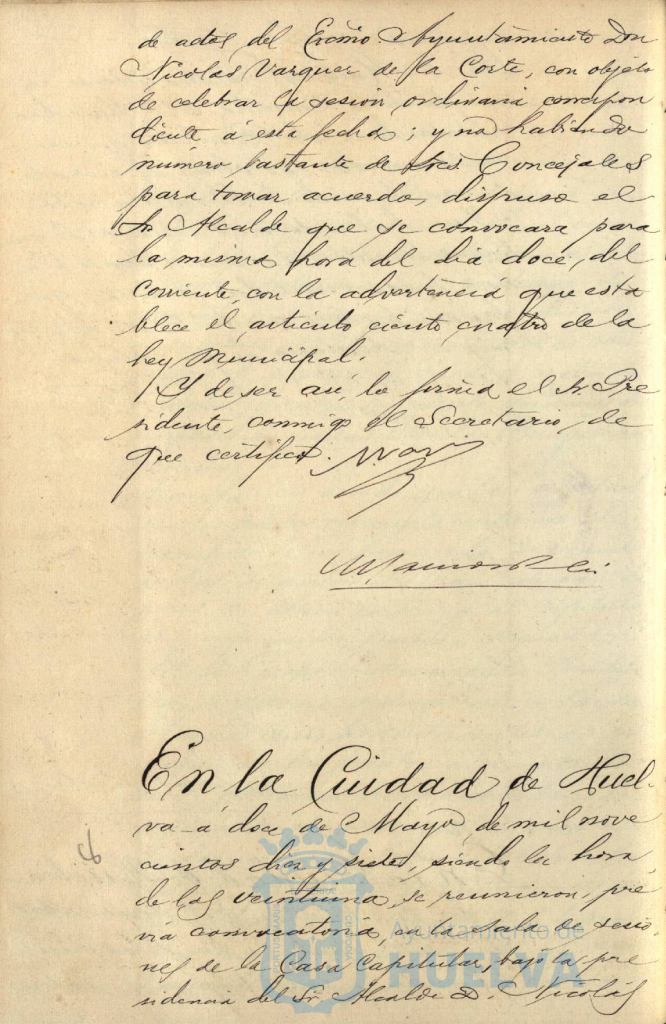 de actos del Excmo. Ayuntamiento Don
Nicolás Vazquez de la Corte, con objeto
de celebrar la sesión ordinaria correspon
diente á esta fecha; y no habiendo
número bastante de Sres. Concejales
para tomar acuerdo, dispuso el
Sr. Alcalde que se convocara para
la misma hora del dia doce, del
corriente, con la advertencia que esta
blece el artículo ciento cuatro de la
ley Municipal.
Y de ser así, lo firma el Sr. Pre
sidente, conmigo el Secretario, de
que certifico.
En la Ciudad de Huel-
va á doce de Mayo de mil nove
cientos diez y siete, siendo la hora
de las veintiuna, se reunieron, pre
via convocatoria, en la sala de sesio
nes de la Casa Capitular, bajo la pre
sidencia del Sr. Alcalde D. Nicolás
Ayuntamiento de
HUELVA